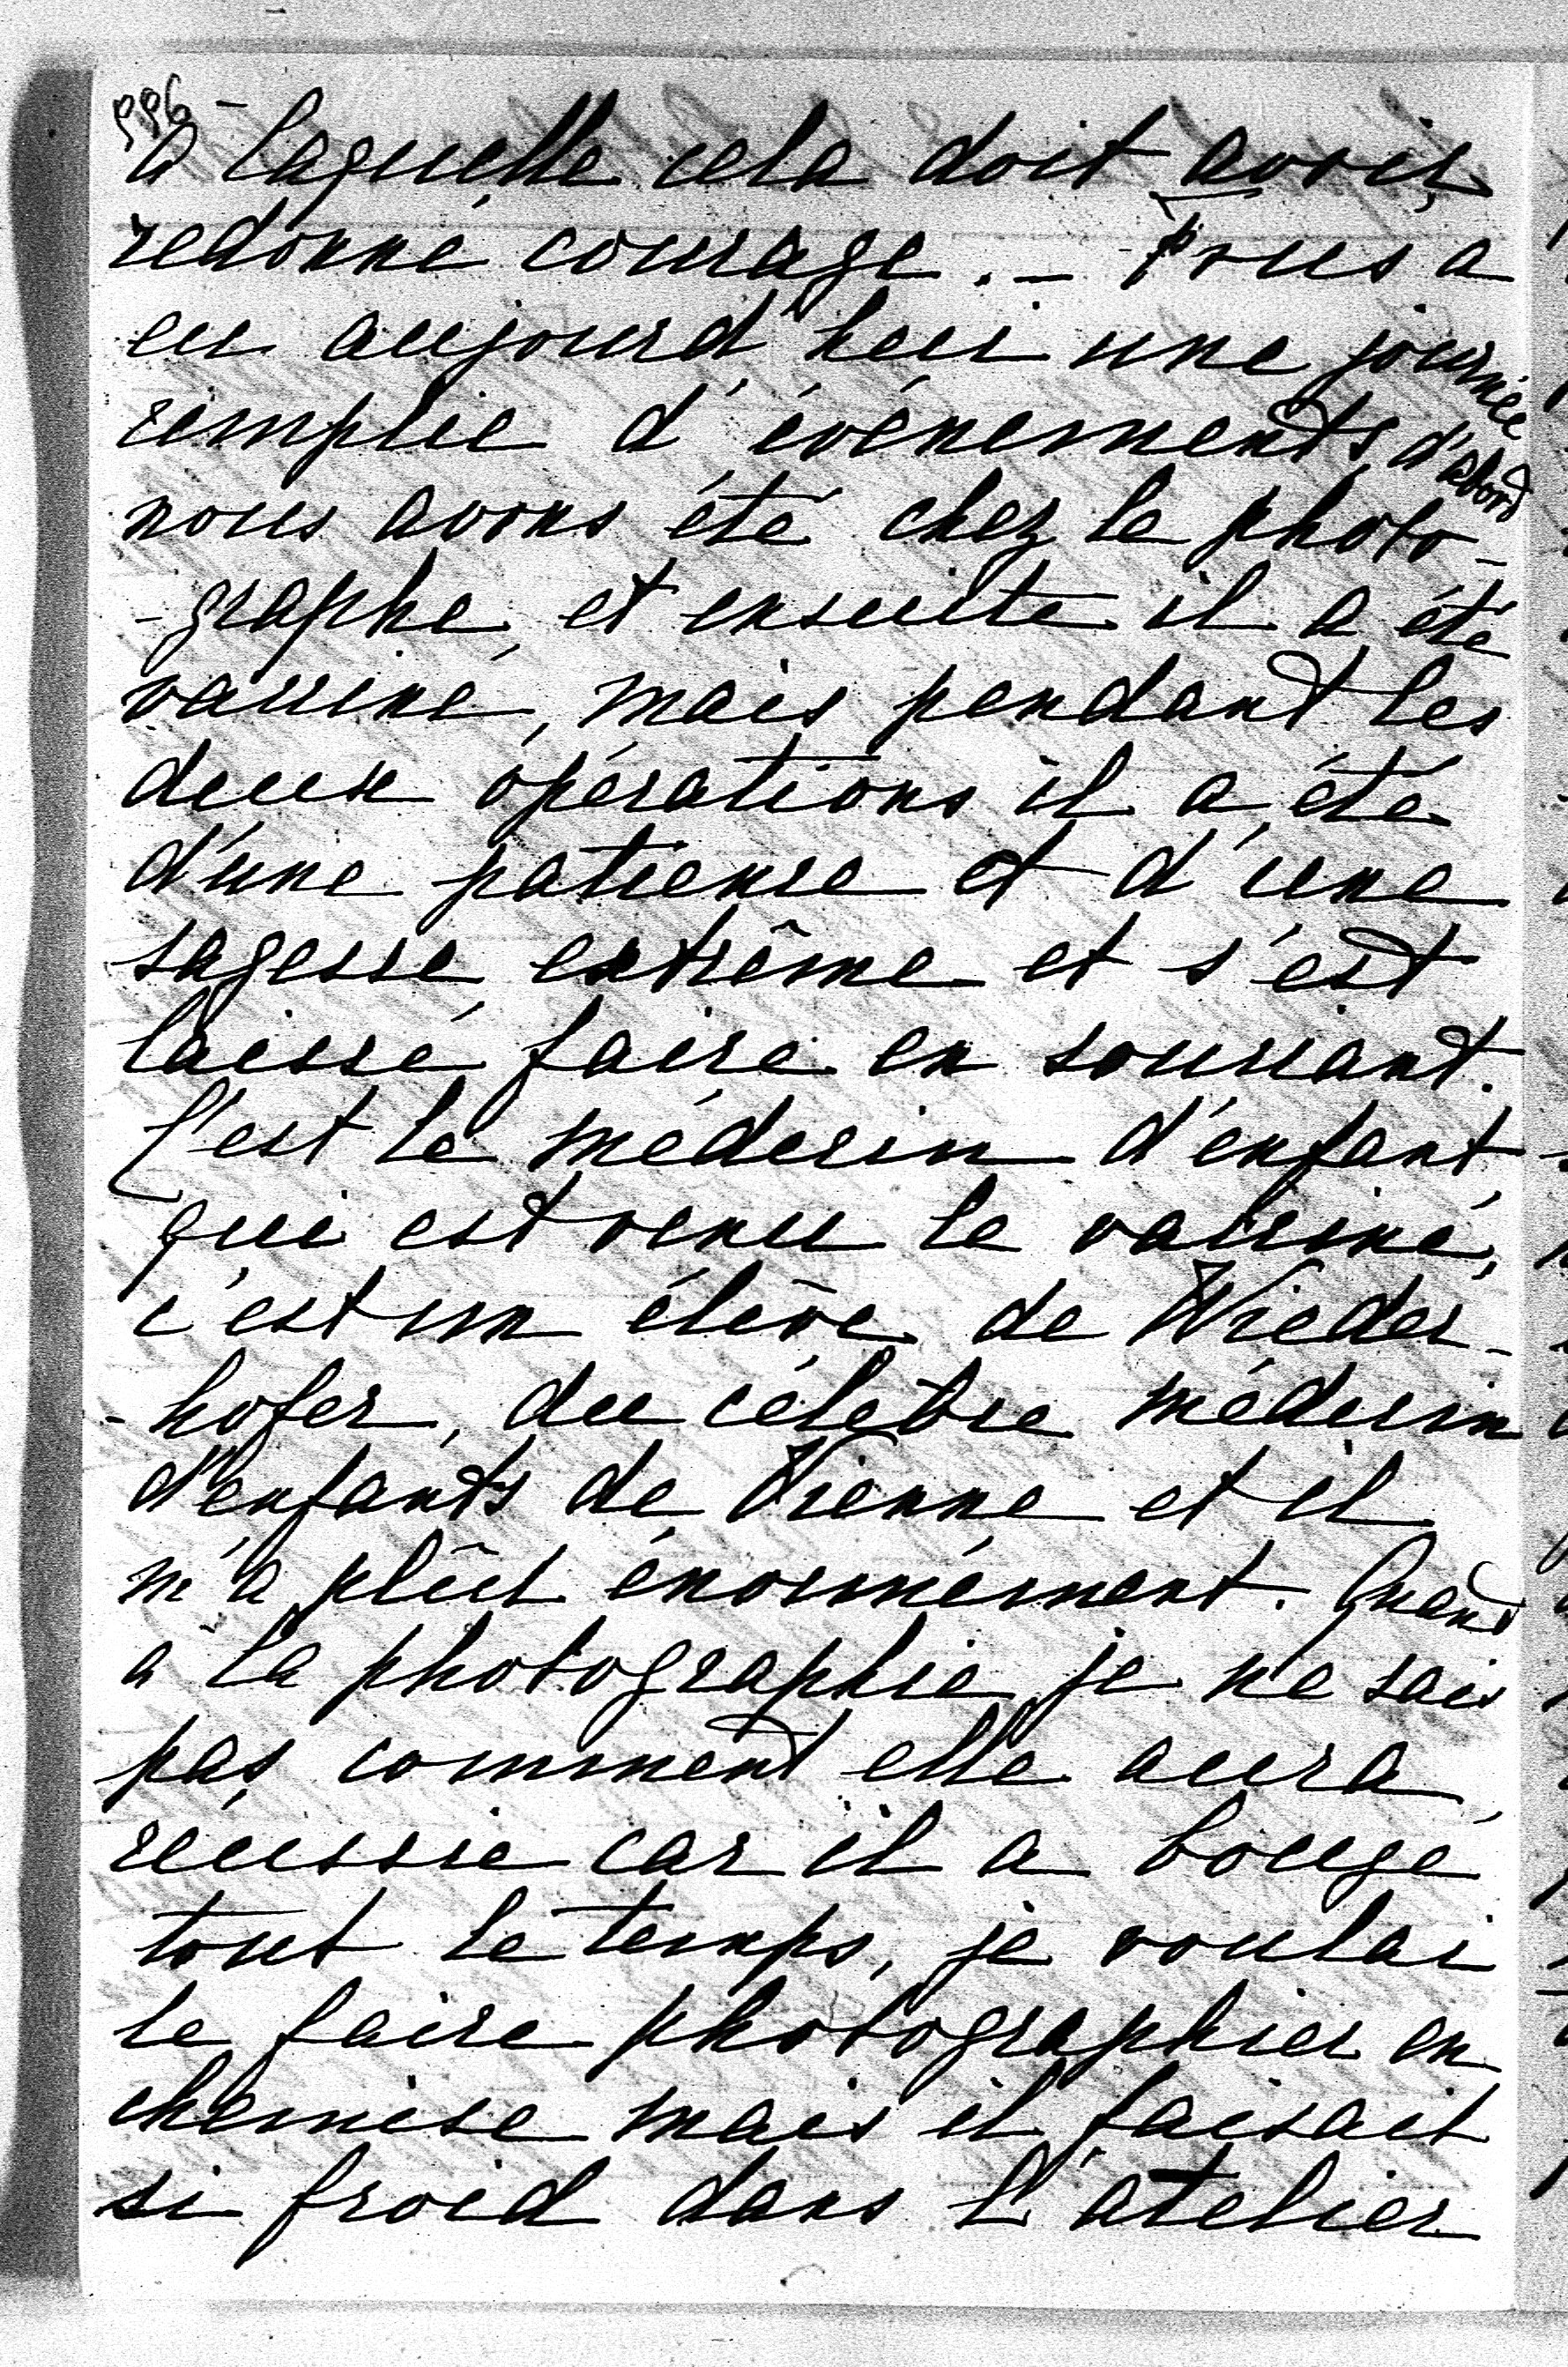 996 -
à laquelle cela doit avoir
redonné courage. - Prus a
eu aujourd'hui une journée
remplie d'évènements, d'abord
nous avons été chez le photo-
-graphe, et ensuite il a été
vacciné, mais pendant les
deux opérations il a été
d'une patience et d'une
sagesse extrême et s'est
laissé faire en souriant.
C'est le médecin d'enfant
qui est venu le vacciné,
c'est un élève de Wieder-
-hofer, du célèbre médecin
d'enfants de Vienne et il
m'a plût énormément. Quand
à la photographie je ne sais
pas comment elle aura
réussie car il a bougé
tout le temps, je voulai
le faire photographier en
chemise mais il faisait
si froid dans l'atelier